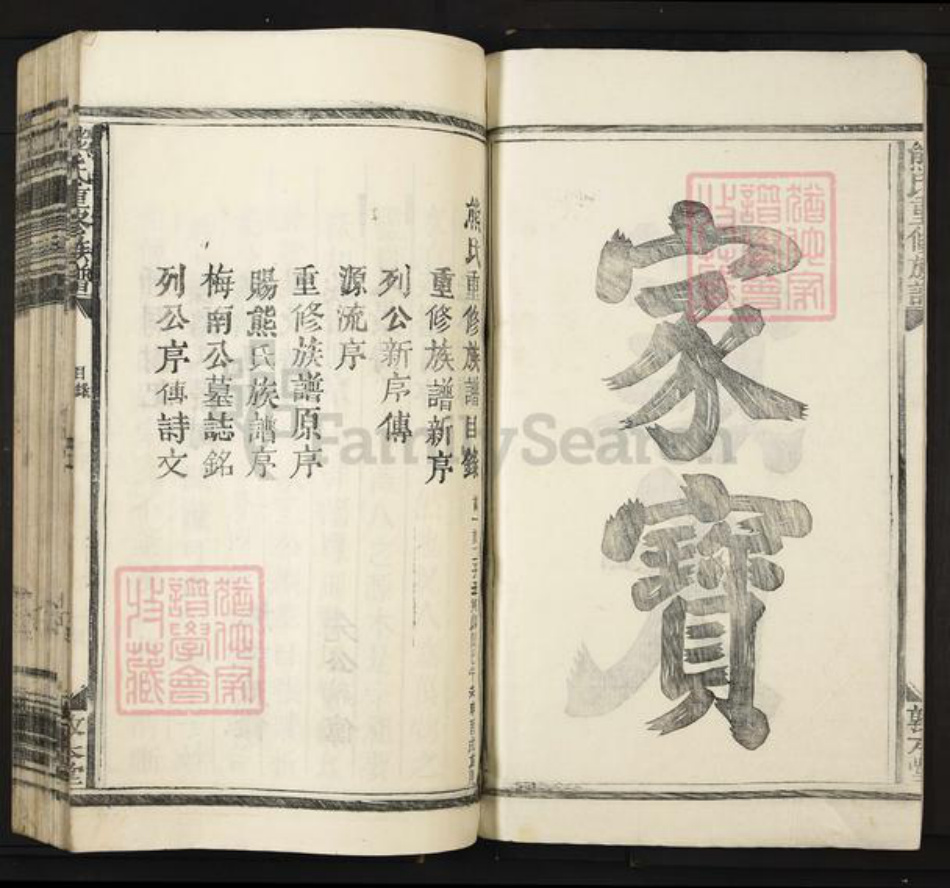 家寶
熊氏重修族譜
敦本堂
熊氏重修族譜目錄
重修族譜新序
列公新序傳
源流序
重修族譜原序
賜熊氏族譜序
梅南公墓誌銘
列公序傳詩文
熊氏重修族譜
目錄
敦本堂
FamilySearch